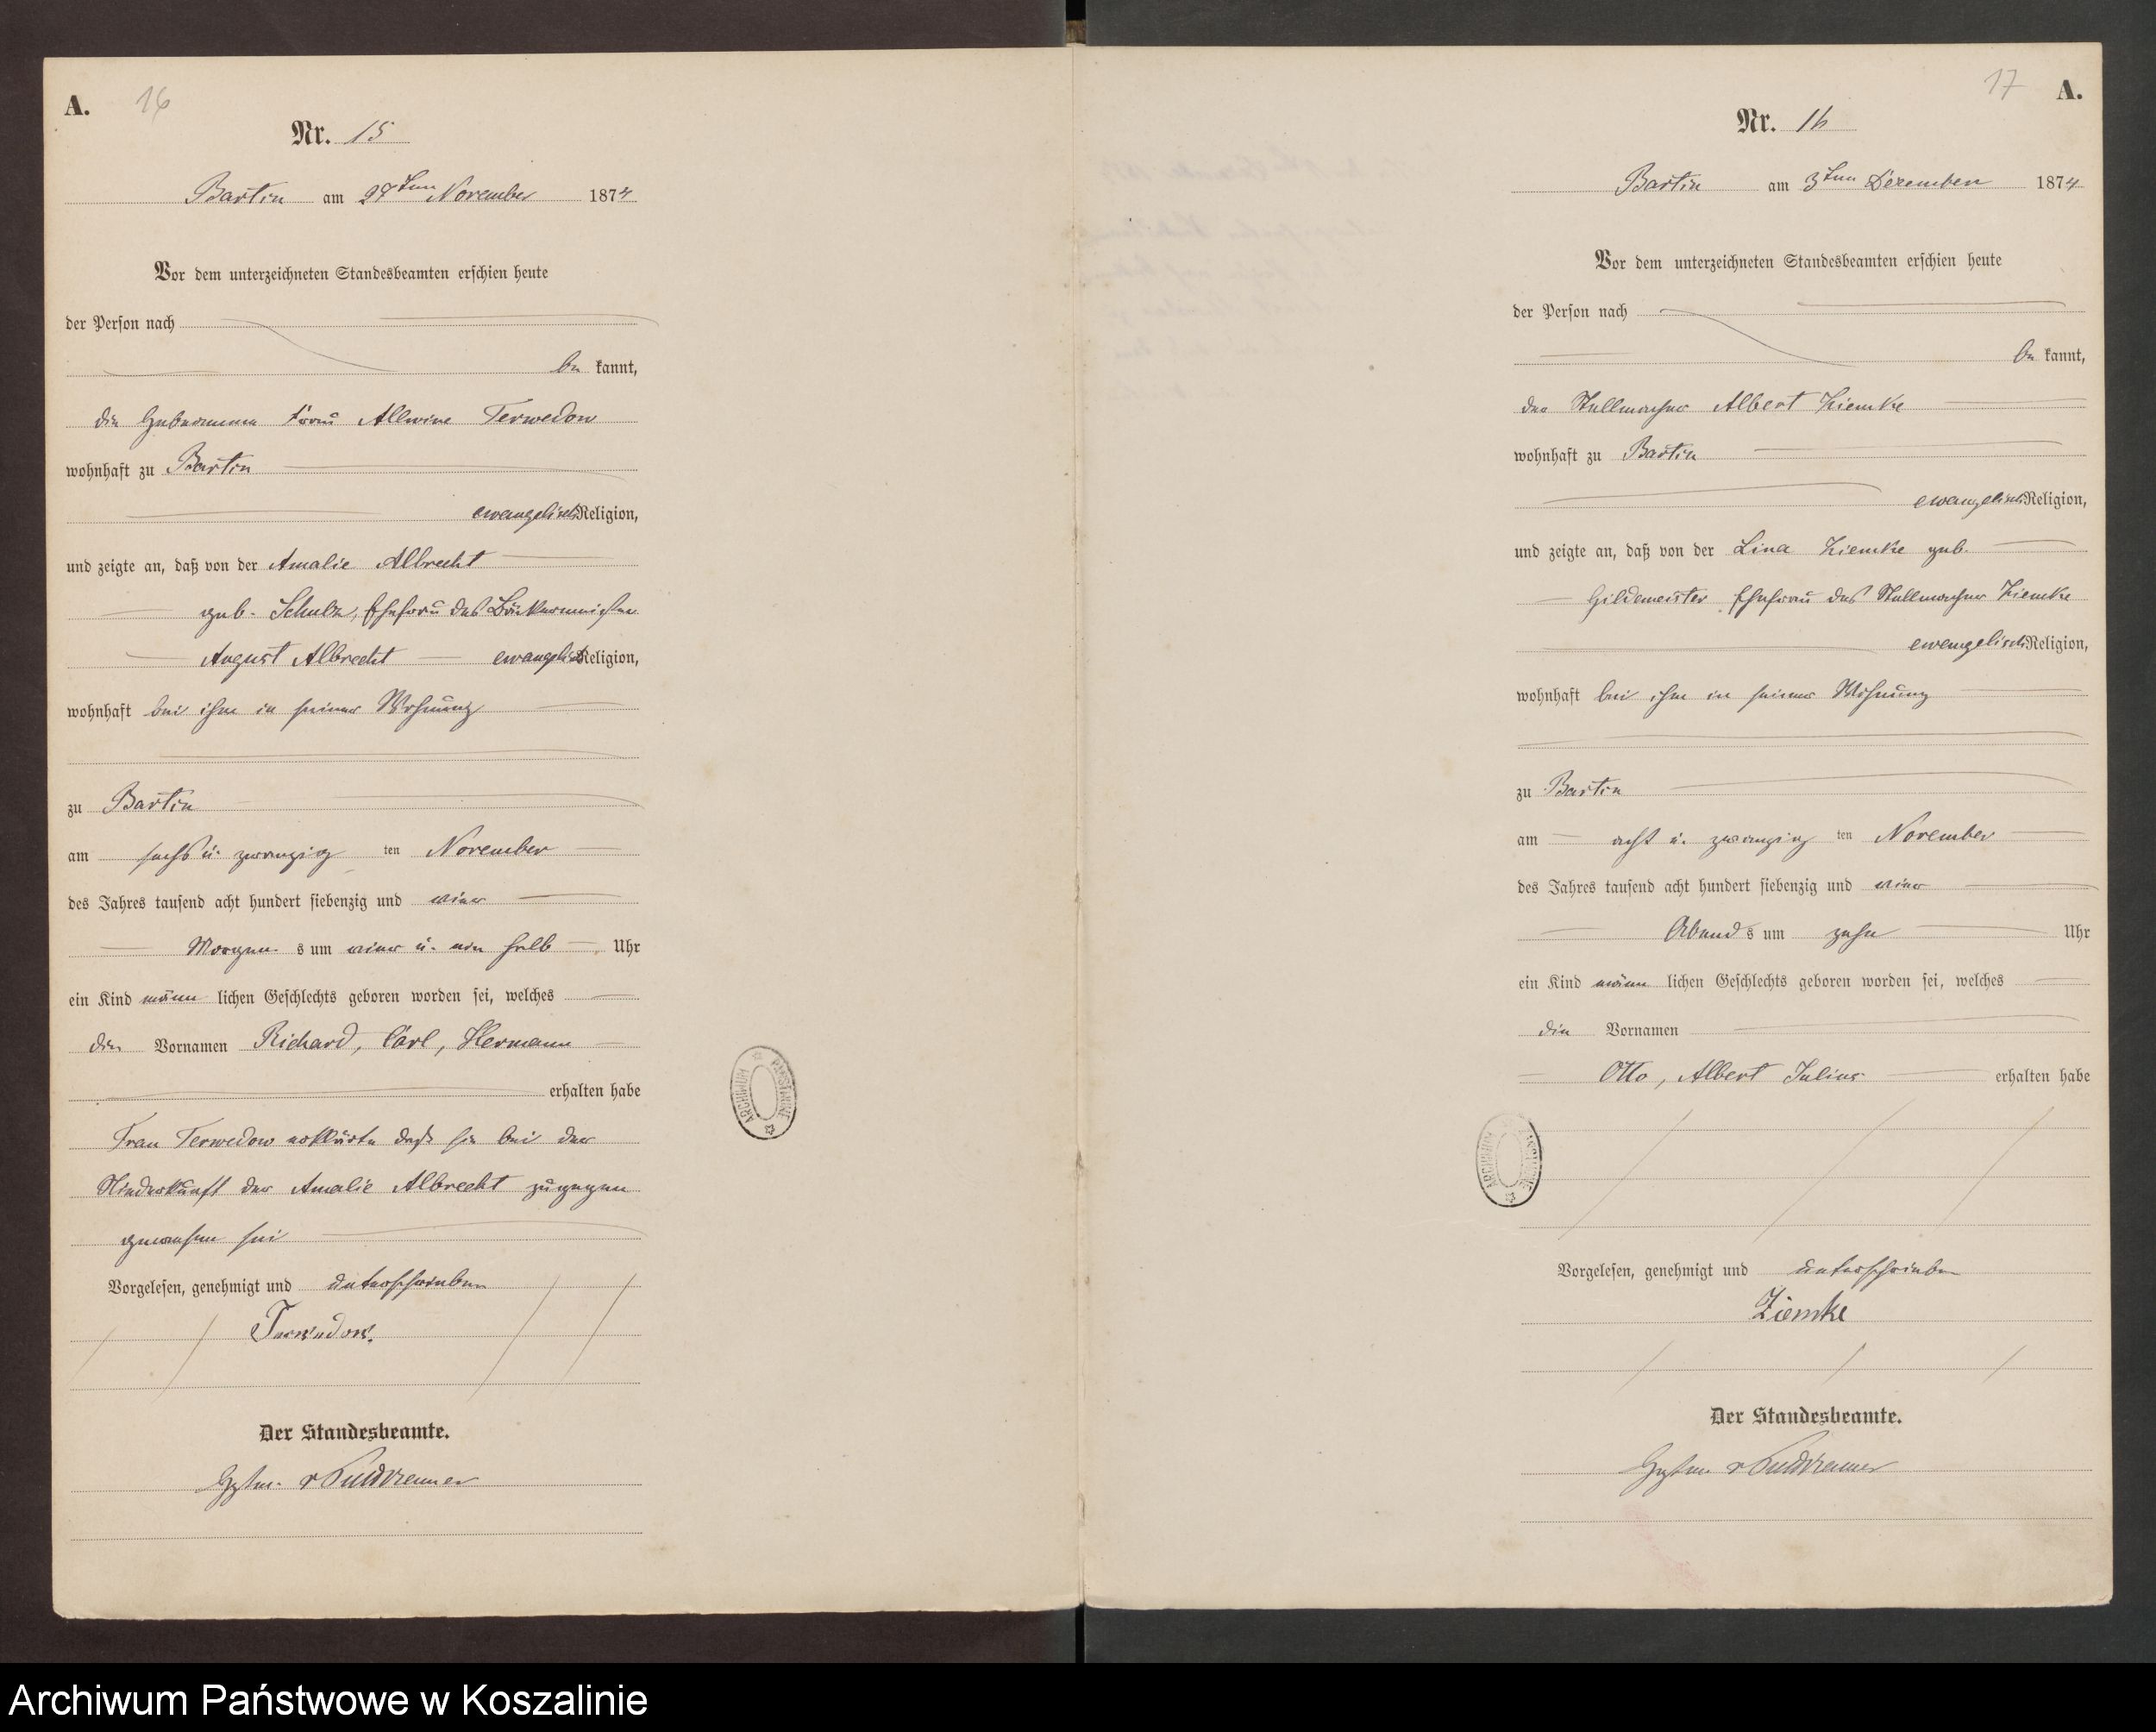 A. 16
Nr. 15
Bartin am 27ten November 1874
Vor dem unterzeichneten Standesbeamten erschien heute
der Person nach
be kannt,
die Hebamme Frau Allwine Terwedow
wohnhaft zu Bartin
evangelisch Religion,
und zeigte an, daß von der Amalie Albrecht
geb. Schulz, Ehefrau des Bäckermeister
August Albrecht evangelisch Religion,
wohnhaft bei ihm in seiner Wohnung
zu Bartin
am sechs u. zwanzig ten November
des Jahres tausend acht hundert siebenzig und vier
Morgen s um vier u. ein halb Uhr
ein Kind männ lichen Geschlechts geboren worden sei, welches
die Vornamen Richard, Carl, Hermann
erhalten habe
Frau Terwedow erklärte daß sie bei der
Niederkunft der Amalie Albrecht zugegen
gewesen sei
Vorgelesen, genehmigt und unterschrieben
Terwedow.
Der Standesbeamte.
v Puttkamer
ARCHIWUM PAŃSTWOWE
17 A.
Nr. 16
Bartin am 3ten Dezember 1874
Vor dem unterzeichneten Standesbeamten erschien heute
der Person nach
be kannt,
der Stellmacher Albert Ziemke
wohnhaft zu Bartin
evangelisch Religion,
und zeigte an, daß von der Lina Ziemke geb.
Gildemeister, Ehefrau des Stellmacher Ziemke
evangelisch Religion,
wohnhaft bei ihm in seiner Wohnung
zu Bartin
am acht u. zwanzig ten November
des Jahres tausend acht hundert siebenzig und vier
Abend s um zehn Uhr
ein Kind männ lichen Geschlechts geboren worden sei, welches
die Vornamen
Otto, Albert Julius erhalten habe
Vorgelesen, genehmigt und unterschrieben
Ziemke
Der Standesbeamte.
v Puttkamer
ARCHIWUM PAŃSTWOWE
Archiwum Państwowe w Koszalinie